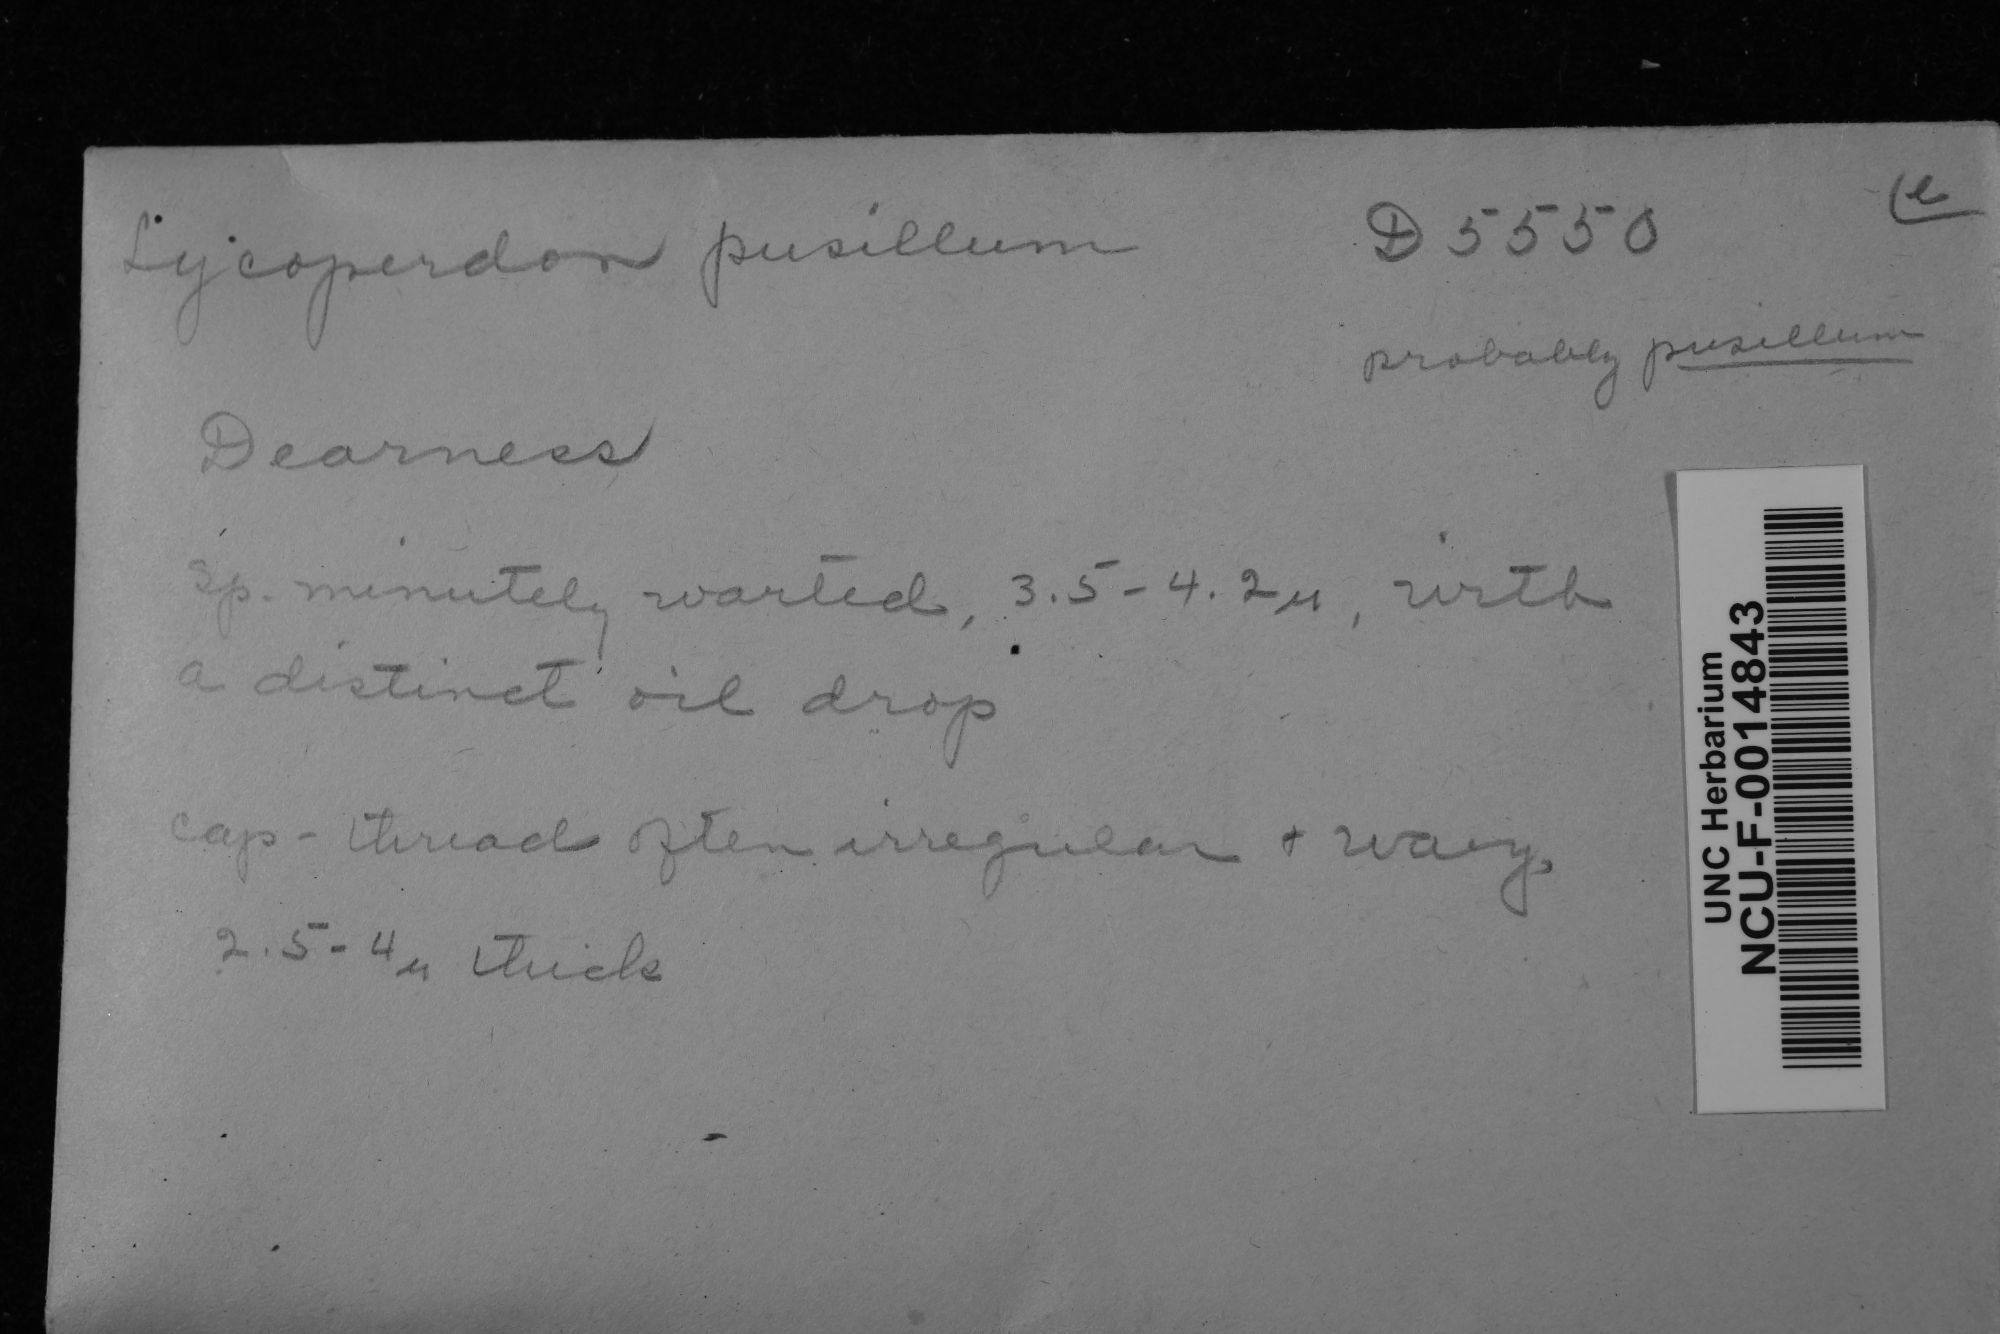 Lycoperdon pusillum D5550
probably pusillum
Dearness
Sp. minutely warted, 3.5-4.2µ, with
a distinct oil drop
cap-thread often irregular + wavy,
2.5-4µ thick
UNC Herbarium
NCU-F-0014843